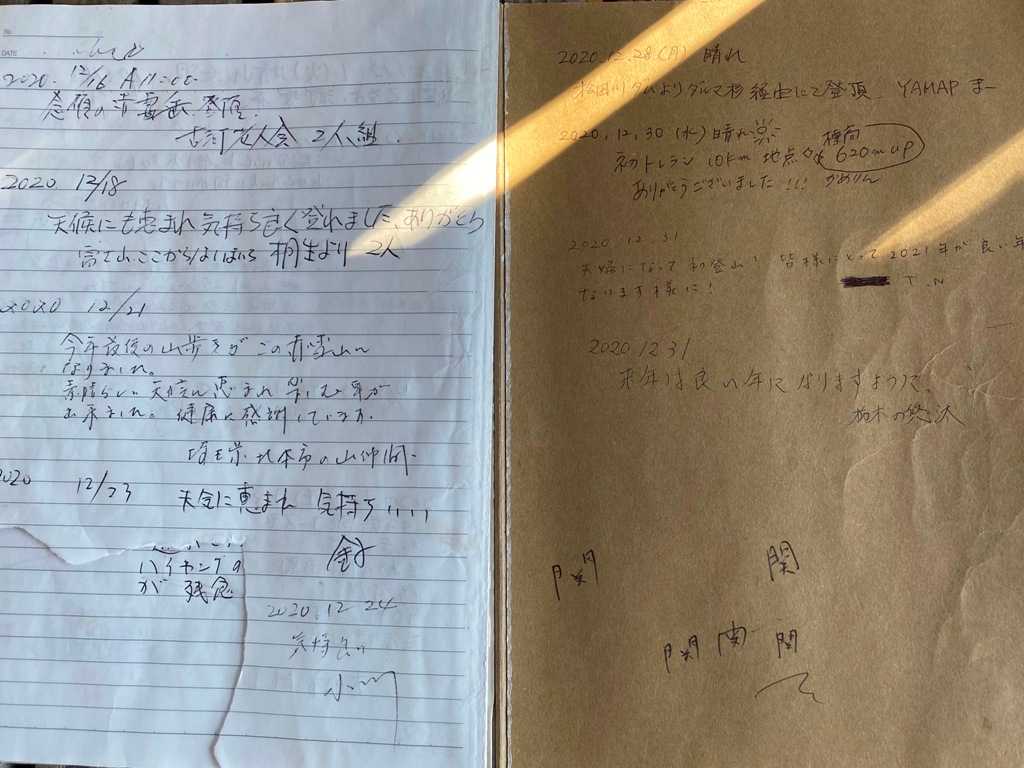 No.
DATE
2020. 12/16 A11:00
念願の 登頂.
古河老人会 2人組.
2020 12/18
天候にも恵まれ気持ち良く登れました、ありがとう
富士山、ここから 桐生より 2人
2020 12/21
今年最後の山歩きがこの 山へ
なりました。
素晴らしい天候に恵まれ 楽しむ事が
出来ました。健康に感謝しています.
埼玉県北本市の山仲間
2020 12/23 天気に恵まれ 気持ち
が 残念
2020.12 24
気持良い
小川
2020.12.28(月) 晴れ
松田川ダムよりダルマ杉経由にて登頂 YAMAP まー
2020.12.30 (水) 晴れ
初トレラン 10km 地点 標高 620m up
ありがとうございました!!! かめりん
2020.12.31
夫婦になって初登山! 皆様にとって2021年が良い年
なります様に! T.N
2020.12 31
来年は良い年になりますように。
栃木の
関 関
関 関 関